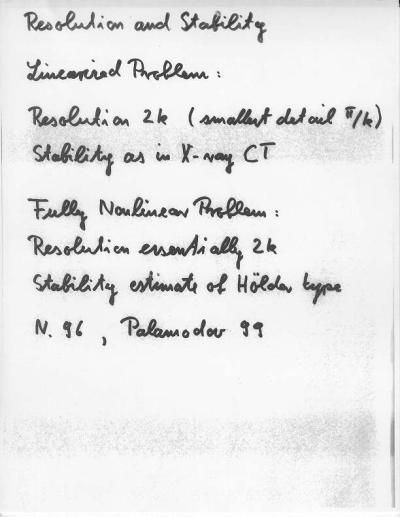 Resolution and Stability
Linearized Problem :
Resolution 2k ( smallest detail π/k )
Stability as in X-ray CT
Fully Nonlinear Problem :
Resolution essentially 2k
Stability estimate of Hölder type
N. 96 , Palamodov 99